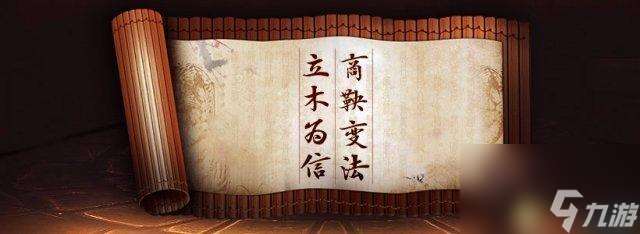 商鞅变法
立木为信
九游